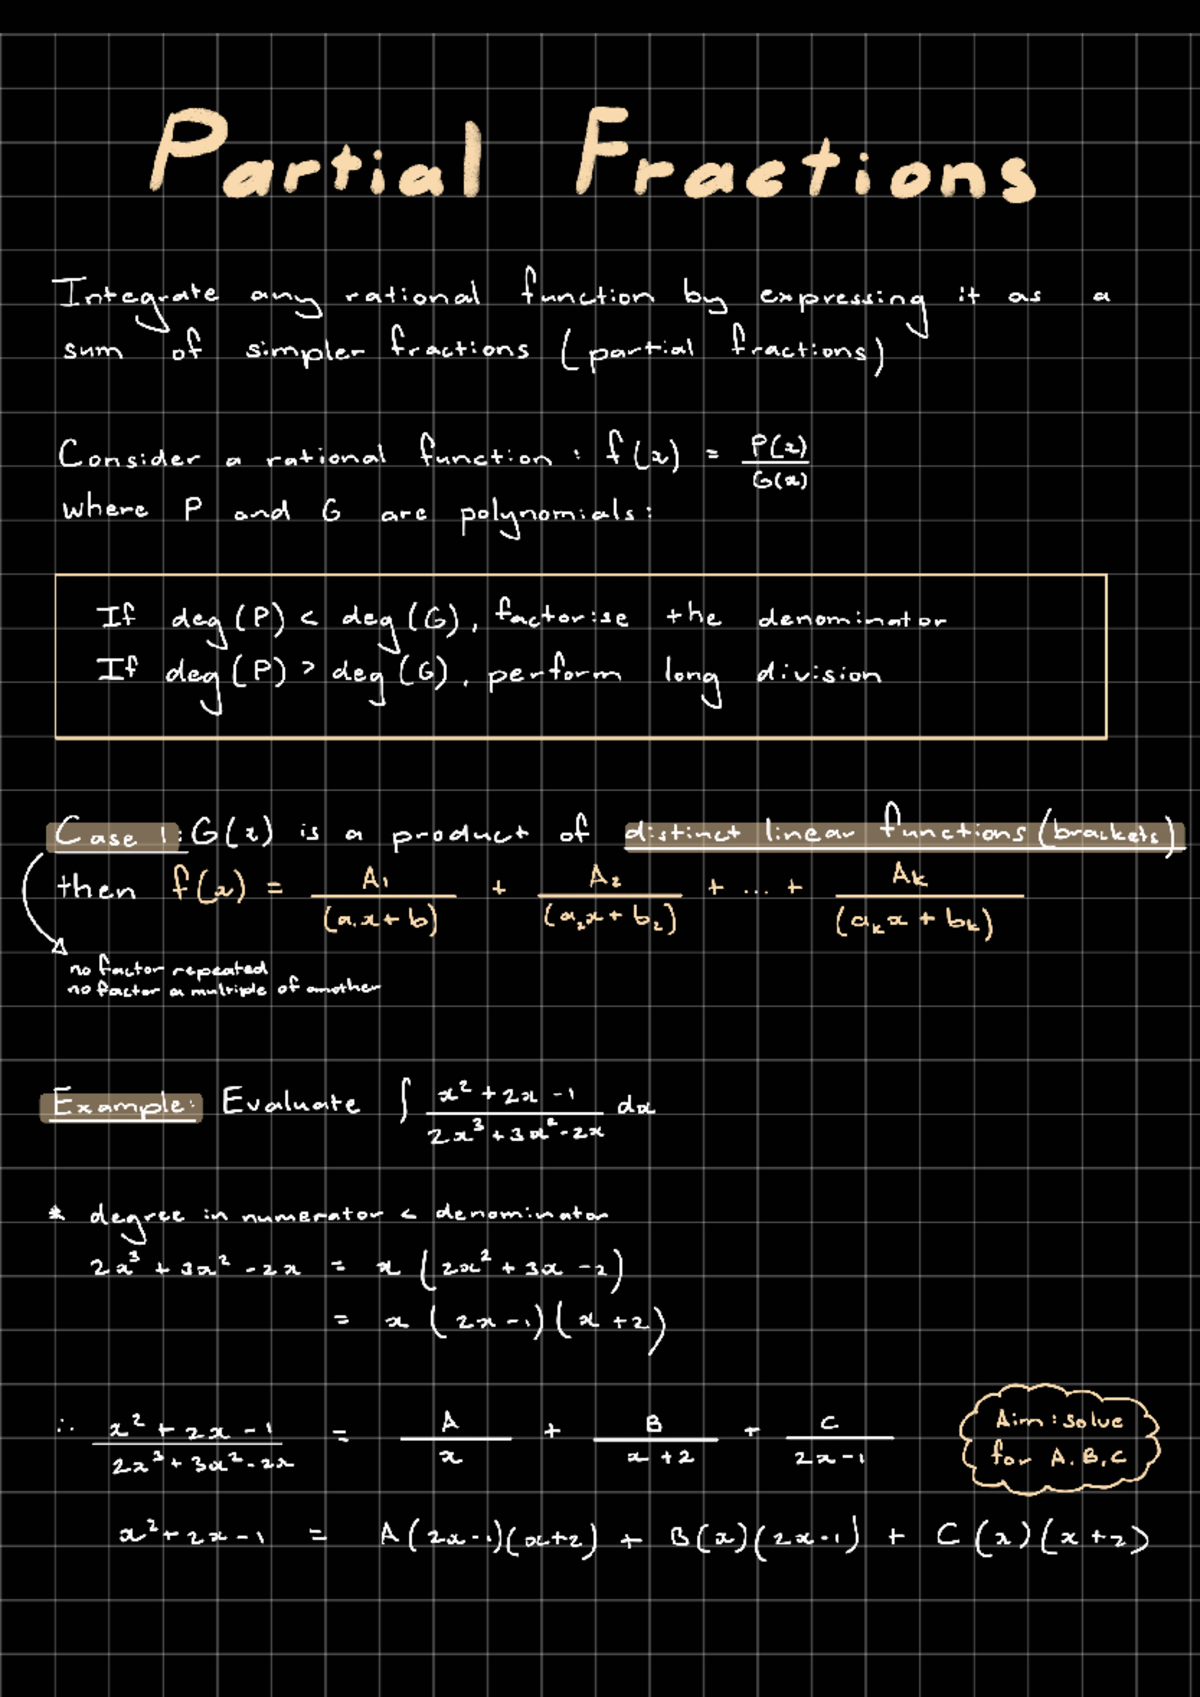 Partial Fractions
Integrate any rational function by expressing it as a
sum of simpler fractions (partial fractions)
Consider a rational function : f(x) = P(x)/G(x)
where P and G are polynomials:
If deg(P) < deg(G), factorise the denominator
If deg(P) > deg(G), perform long division
Case 1: G(x) is a product of distinct linear functions (brackets)
then f(x) = A₁/(a₁x + b) + A₂/(a₂x + b₂) + ... + Aₖ/(aₖx + bₖ)
no factor repeated
no factor a multiple of another
Example: Evaluate ∫ (x² + 2x - 1)/(2x³ + 3x² - 2x) dx
* degree in numerator < denominator
2x³ + 3x² - 2x = x (2x² + 3x - 2)
= x (2x - 1)(x + 2)
∴ (x² + 2x - 1)/(2x³ + 3x² - 2x) = A/x + B/(x + 2) + C/(2x - 1)
Aim: solve
for A, B, C
x² + 2x - 1 = A(2x - 1)(x + 2) + B(x)(2x - 1) + C(x)(x + 2)